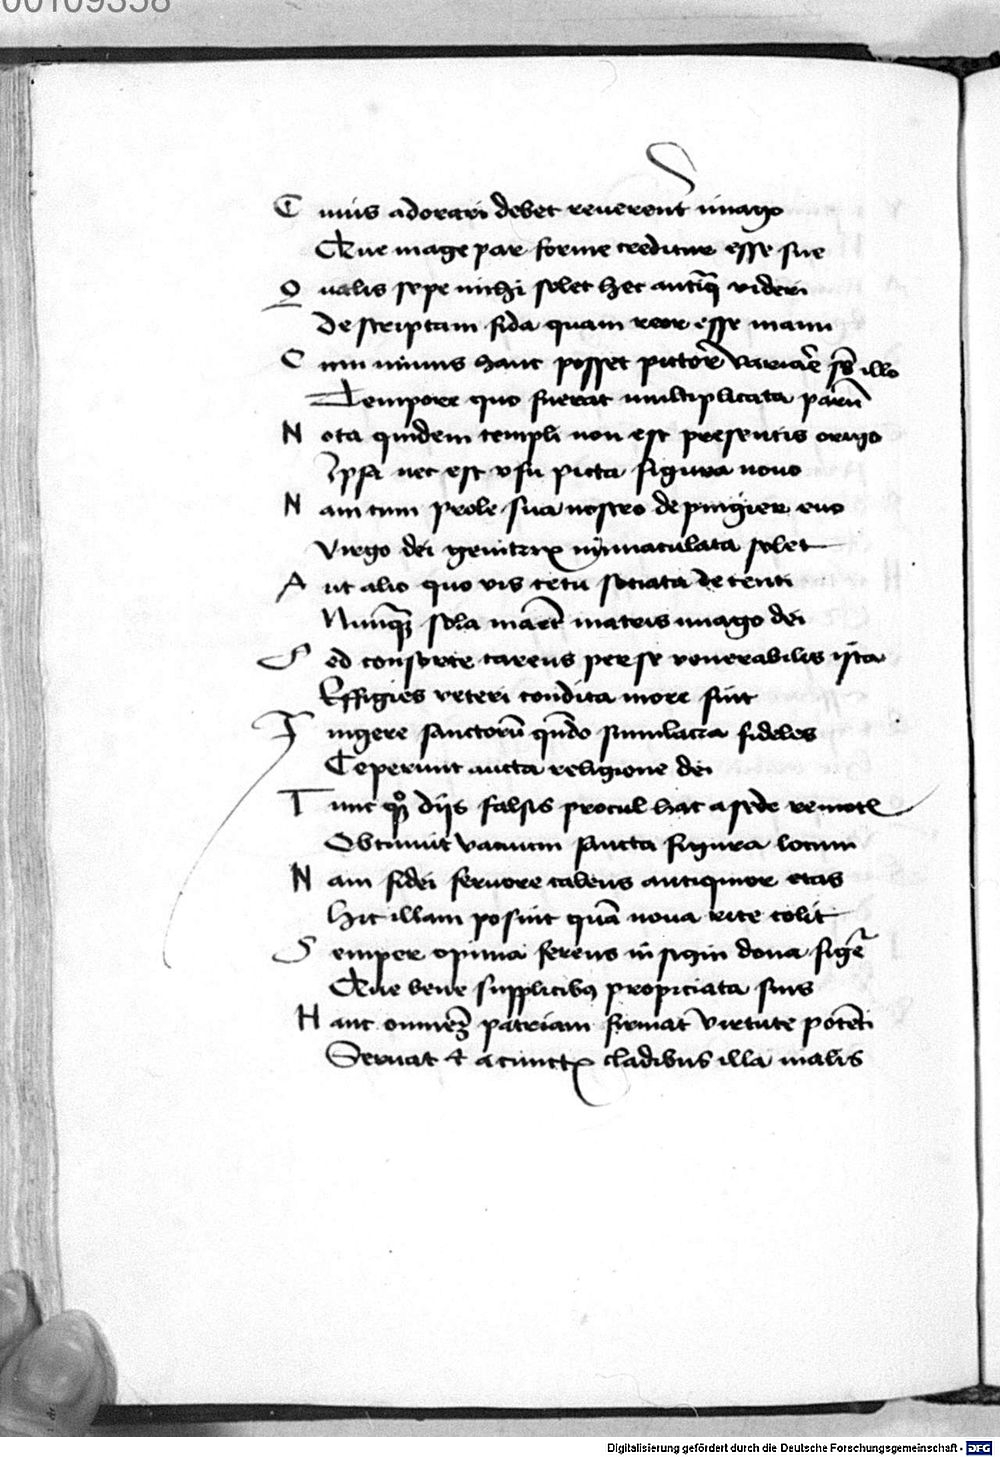 00109358
Cuius adorari debet reuerenter imago
Que mage par forme creditur esse sue
Qualis sepe michi solet hec antiq̄ videri
Descriptam fida quam reor esse manu
Cum minus hanc posset pictor̄ variar̄e sb̄ illo
Tempore quo fuerat multiplicata parū
Nota quidem templi non est presentis origo
Ipsa nec est vsu picta figura nouo
Nam cum prole sua nostro depingier euo
Virgo dei genitrix inmaculata solet
Aut alio quo vis cetu sociata decenti
Nunq̄ sola man̄et matris imago dei
Sed consorte carens per se venerabilis ista
Effigies veteri condita more fuit
Fingere sanctorū qn̄do simulacra fideles
Ceperunt aucta religione dei
Tunc qͦq̄ diis falsis procul hac a sede remotis
Obtinuit vacuum sancta figura locum
Nam fidei feruore calens antiquior etas
Hic illam posuit quā noua rite colit
Semper opima ferens insigni dona figur̄e
Que bene supplicibꝰ propiciata suis
Hanc omnez patriam firmat virtute potēti
Seruat et a cunctis cladibus illa malis
Digitalisierung gefördert durch die Deutsche Forschungsgemeinschaft - DFG